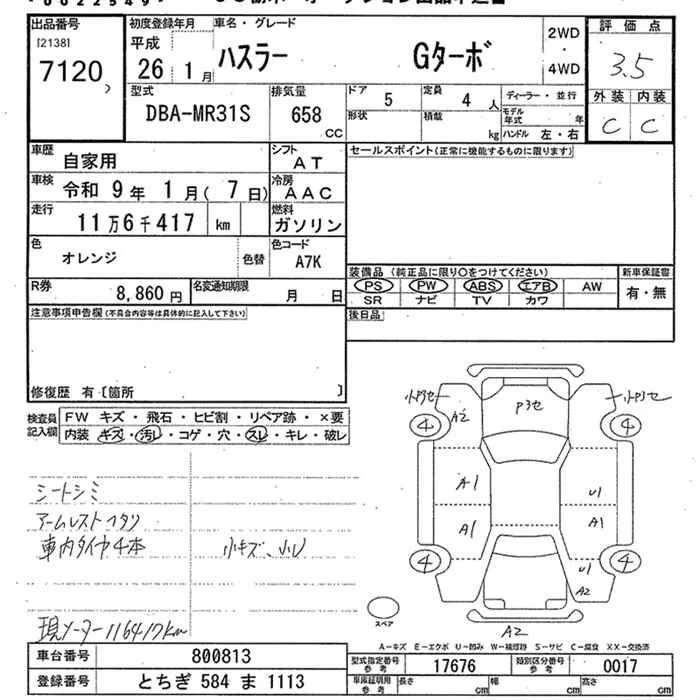 出品番号
[2138]
7120
初度登録年月
平成
26 1月
車名・グレード
ハスラー Gターボ
2WD
・
4WD
評価点
3.5
外装 内装
C C
型式
DBA-MR31S
排気量
658
CC
ドア 5
定員 4 人
形状
積載 kg
ディーラー・並行
モデル年式 年
ハンドル 左・右
車歴 自家用
シフト AT
車検 令和 9年 1月( 7日)
冷房 AAC
走行 11万6千417 km
燃料 ガソリン
色 オレンジ 色替
色コード A7K
R券 8,860円
名変通知期限 月 日
セールスポイント(正常に機能するものに限ります)
装備品 (純正品に限り○をつけてください)
PS PW ABS エアB AW
SR ナビ TV カワ
新車保証書
有・無
後日品
注意事項申告欄(不具合内容等は具体的に記入して下さい)
修復歴 有〔箇所 〕
検査員記入欄
FW キズ・飛石・ヒビ割・リペア跡・×要
内装 キズ・汚レ・コゲ・穴・スレ・キレ・破レ
シートシミ
アームレストヘタリ
車内タイヤ4本 小キズ、小U
現メーター116417km
A2
4 4
A1 U1
A1 A1
4 4
U1
A2
A2
スペア
A-キズ E-エクボ U-凹み W-補修跡 S-サビ C-腐食 XX-交換済
車台番号 800813
登録番号 とちぎ 584 ま 1113
型式指定番号
参考
17676
類別区分番号
参考
0017
車庫証明用
参考
長さ cm
幅 cm
高さ cm